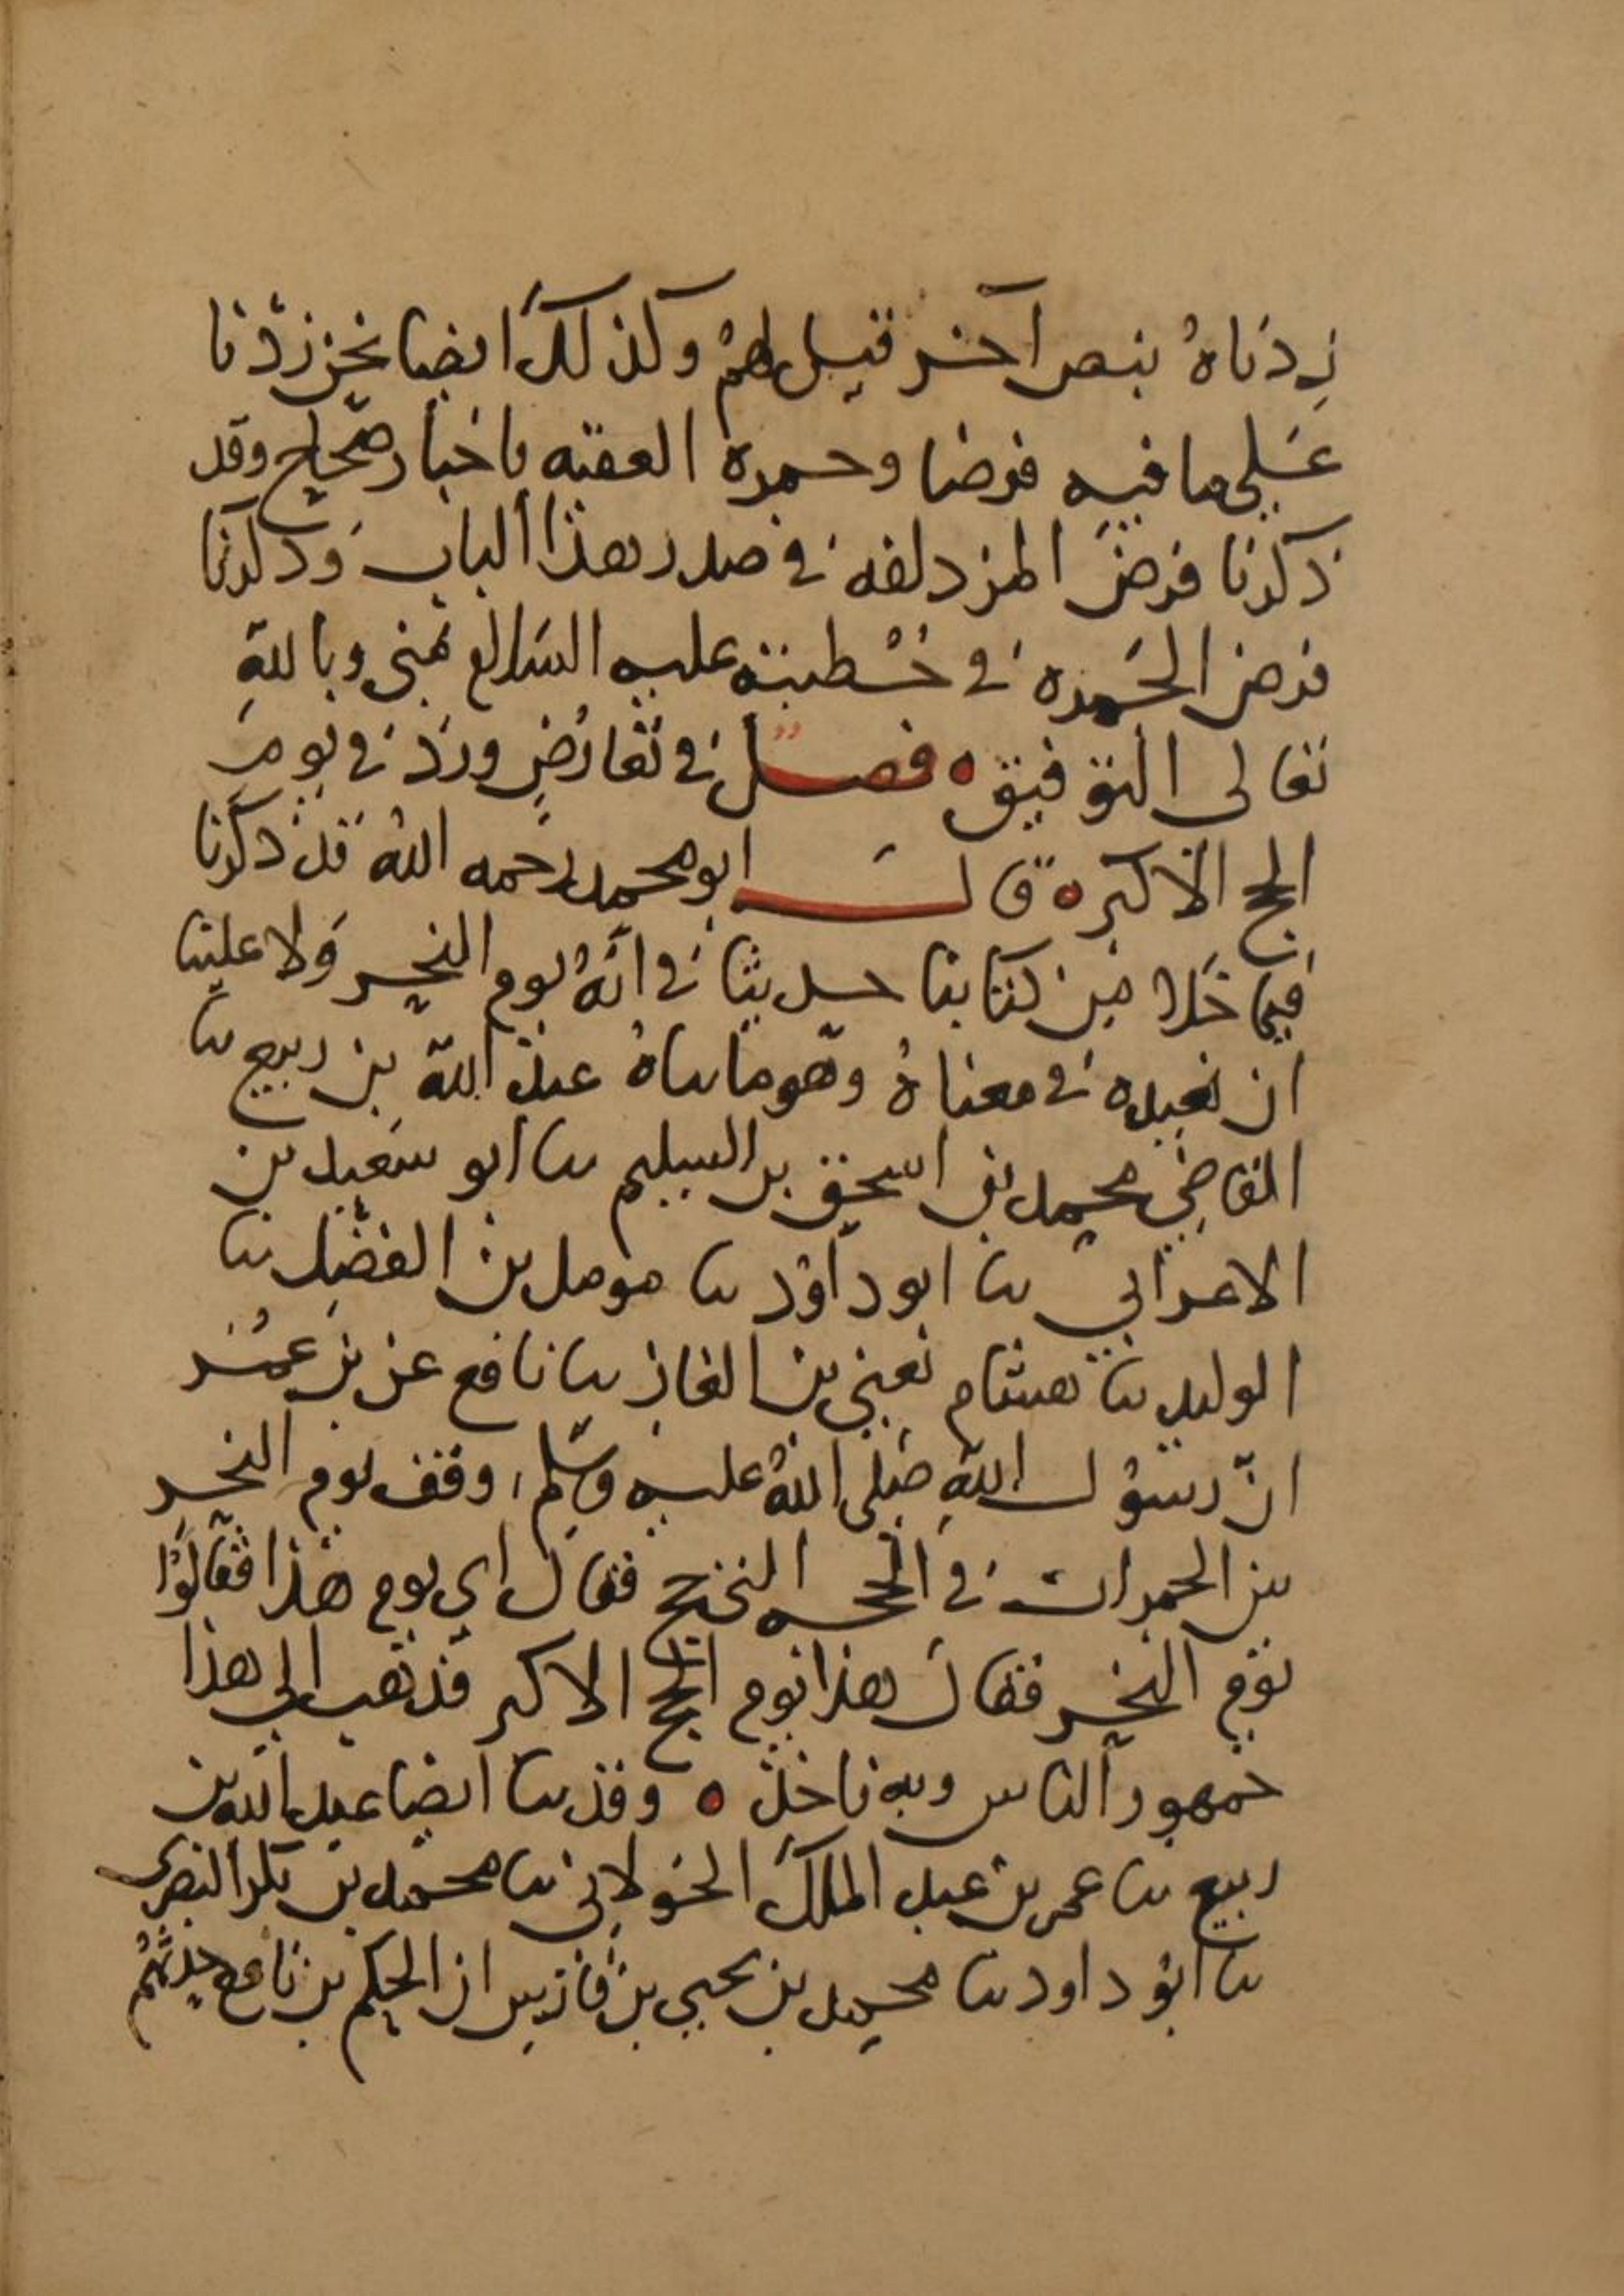 زدناهُ بنص آخر قيل لهم وكذلك ايضا نحن زدنا
على ما فيه فرضا وجمرة العقبه باخبار صحاح وقد
ذكرنا فرض المزدلفه في صدر هذا الباب وذكرنا
فرض الجمره في خطبته عليه السلام بمنى وبالله
تعالى التوفيق ه فصل في تعارض ورد في يوم
الحج الاكبر ه قال ابو محمد رحمه الله قد ذكرنا
فيما خلا من كتابنا حديثا في انه يوم النحر ولا علينا
ان نعيده في معناه وهو ما ثناه عبد الله بن ربيع ثنا
القاضي محمد بن اسحق بن السليم ثنا ابو سعيد بن
الاعرابي ثنا ابو داود ثنا مومل بن الفضل ثنا
الوليد ثنا هشام يعني بن الغاز ثنا نافع عن بن عمر
ان رسول الله صلى الله عليه وسلم وقف يوم النحر
بين الجمرات في الحجه التي حج فقال اي يوم هذا فقالوا
يوم النحر فقال هذا يوم الحج الاكبر فذهب الى هذا
جمهور الناس وبه ناخذ ه وقد ثنا ايضا عبد الله بن
ربيع ثنا عمر بن عبد الملك الخولاني ثنا محمد بن بكر البصرى
ثنا ابو داود ثنا محمد بن يحيى بن فارس ان الحكم بن نافع حدثهم